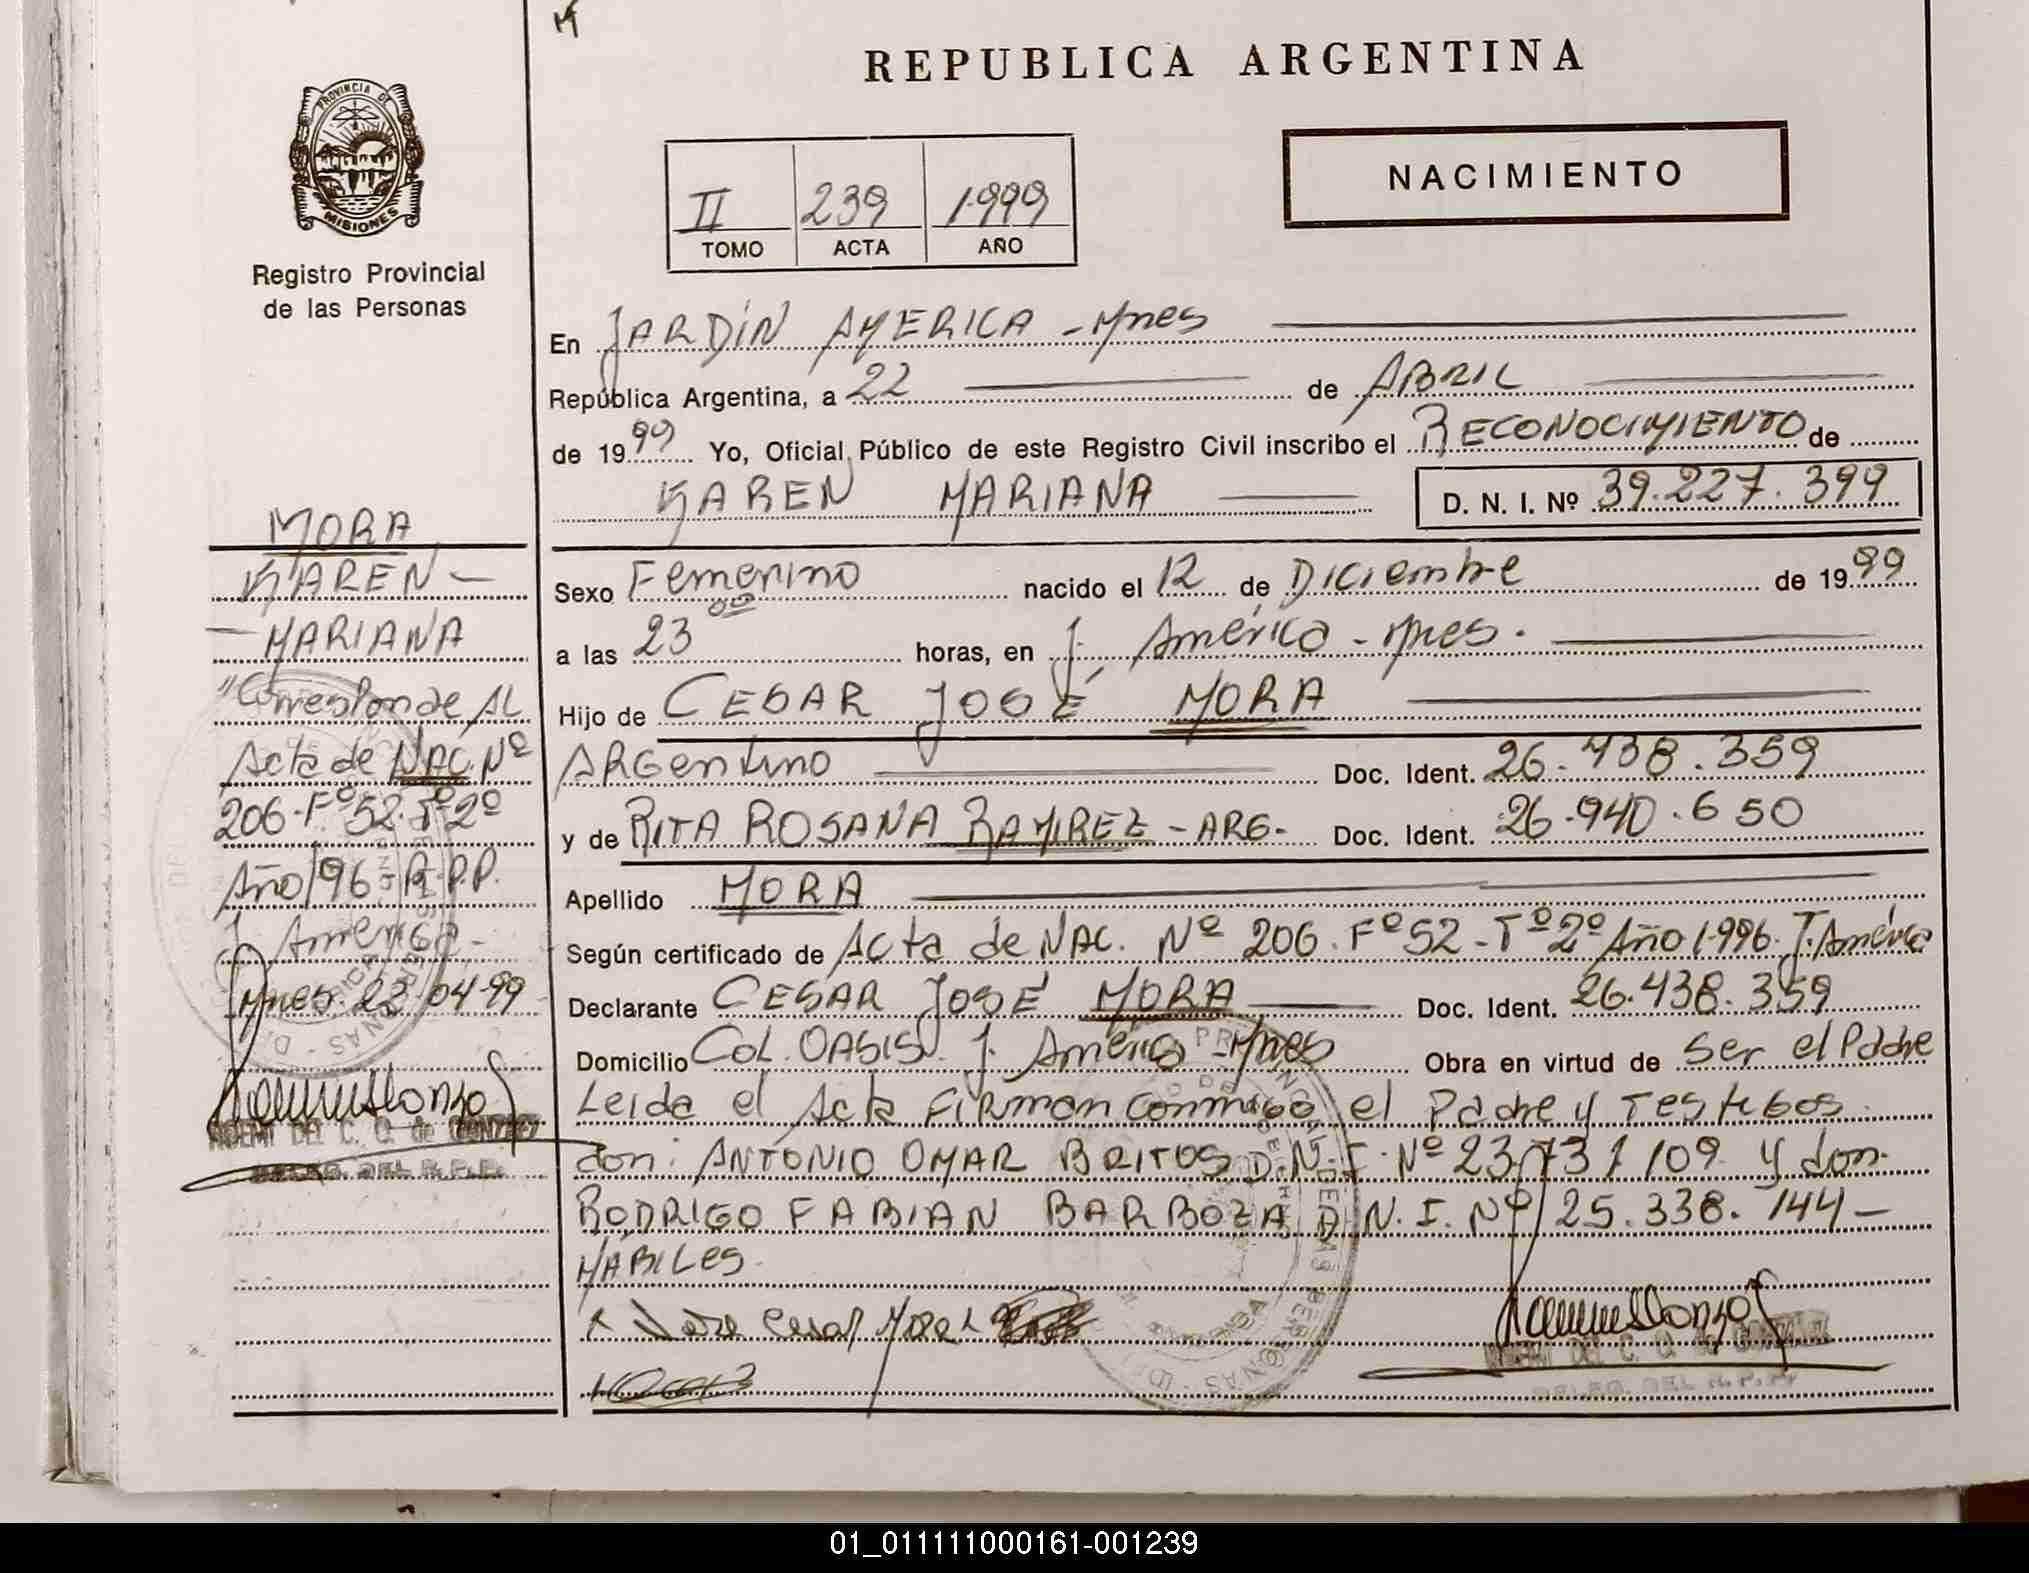 REPUBLICA ARGENTINA
PROVINCIA DE
MISIONES
Registro Provincial
de las Personas
NACIMIENTO
II 239 1999
TOMO ACTA AÑO
En JARDIN AMERICA - Mnes
República Argentina, a 22 de ABRIL
de 1999 Yo, Oficial Público de este Registro Civil inscribo el RECONOCIMIENTO de
KAREN MARIANA D. N. I. Nº 39.227.399
Sexo Femenino nacido el 12 de Diciembre de 1999
a las 23 00 horas, en J. América - Mnes.
Hijo de CESAR JOSÉ MORA
ARGentino Doc. Ident. 26.438.359
y de RITA ROSANA RAMIREZ - ARG- Doc. Ident. 26.940.650
Apellido MORA
Según certificado de Acta de NAC. Nº 206. Fº 52 - Tº 2º Año 1.996. J. América
Declarante CESAR JOSÉ MORA Doc. Ident. 26.438.359
Domicilio Col. OASIS J. América - Mnes Obra en virtud de Ser el Padre
Leida el Acta FIRMAN conmigo el Padre y Testigos
don: ANTONIO OMAR BRITOS D.N.I. Nº 23.731.109 y don
RODRIGO FABIAN BARBOZA D.N.I. Nº 25.338.144 -
HÁBILES.
MORA
KAREN -
- MARIANA
"Corresponde AL
Acta de NAC. Nº
206 - Fº 52 - Tº 2º
Año/96 - R.P.P.
J. America -
Mnes. 22-04-99
NOEMI DEL C. Q. de GONZALEZ
DELEG. DEL R.P.P.
NOEMI DEL C. Q. de GONZALEZ
DELEG. DEL R.P.P.
01_011111000161-001239